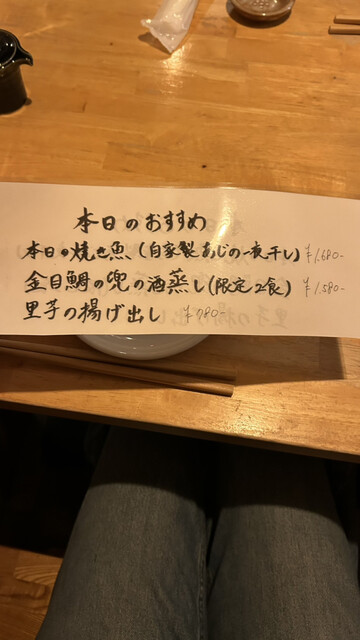 本日のおすすめ
本日の焼き魚(自家製あじの一夜干し) ¥1,680-
金目鯛の兜の酒蒸し(限定2食) ¥1,580-
里芋の揚げ出し ¥780-